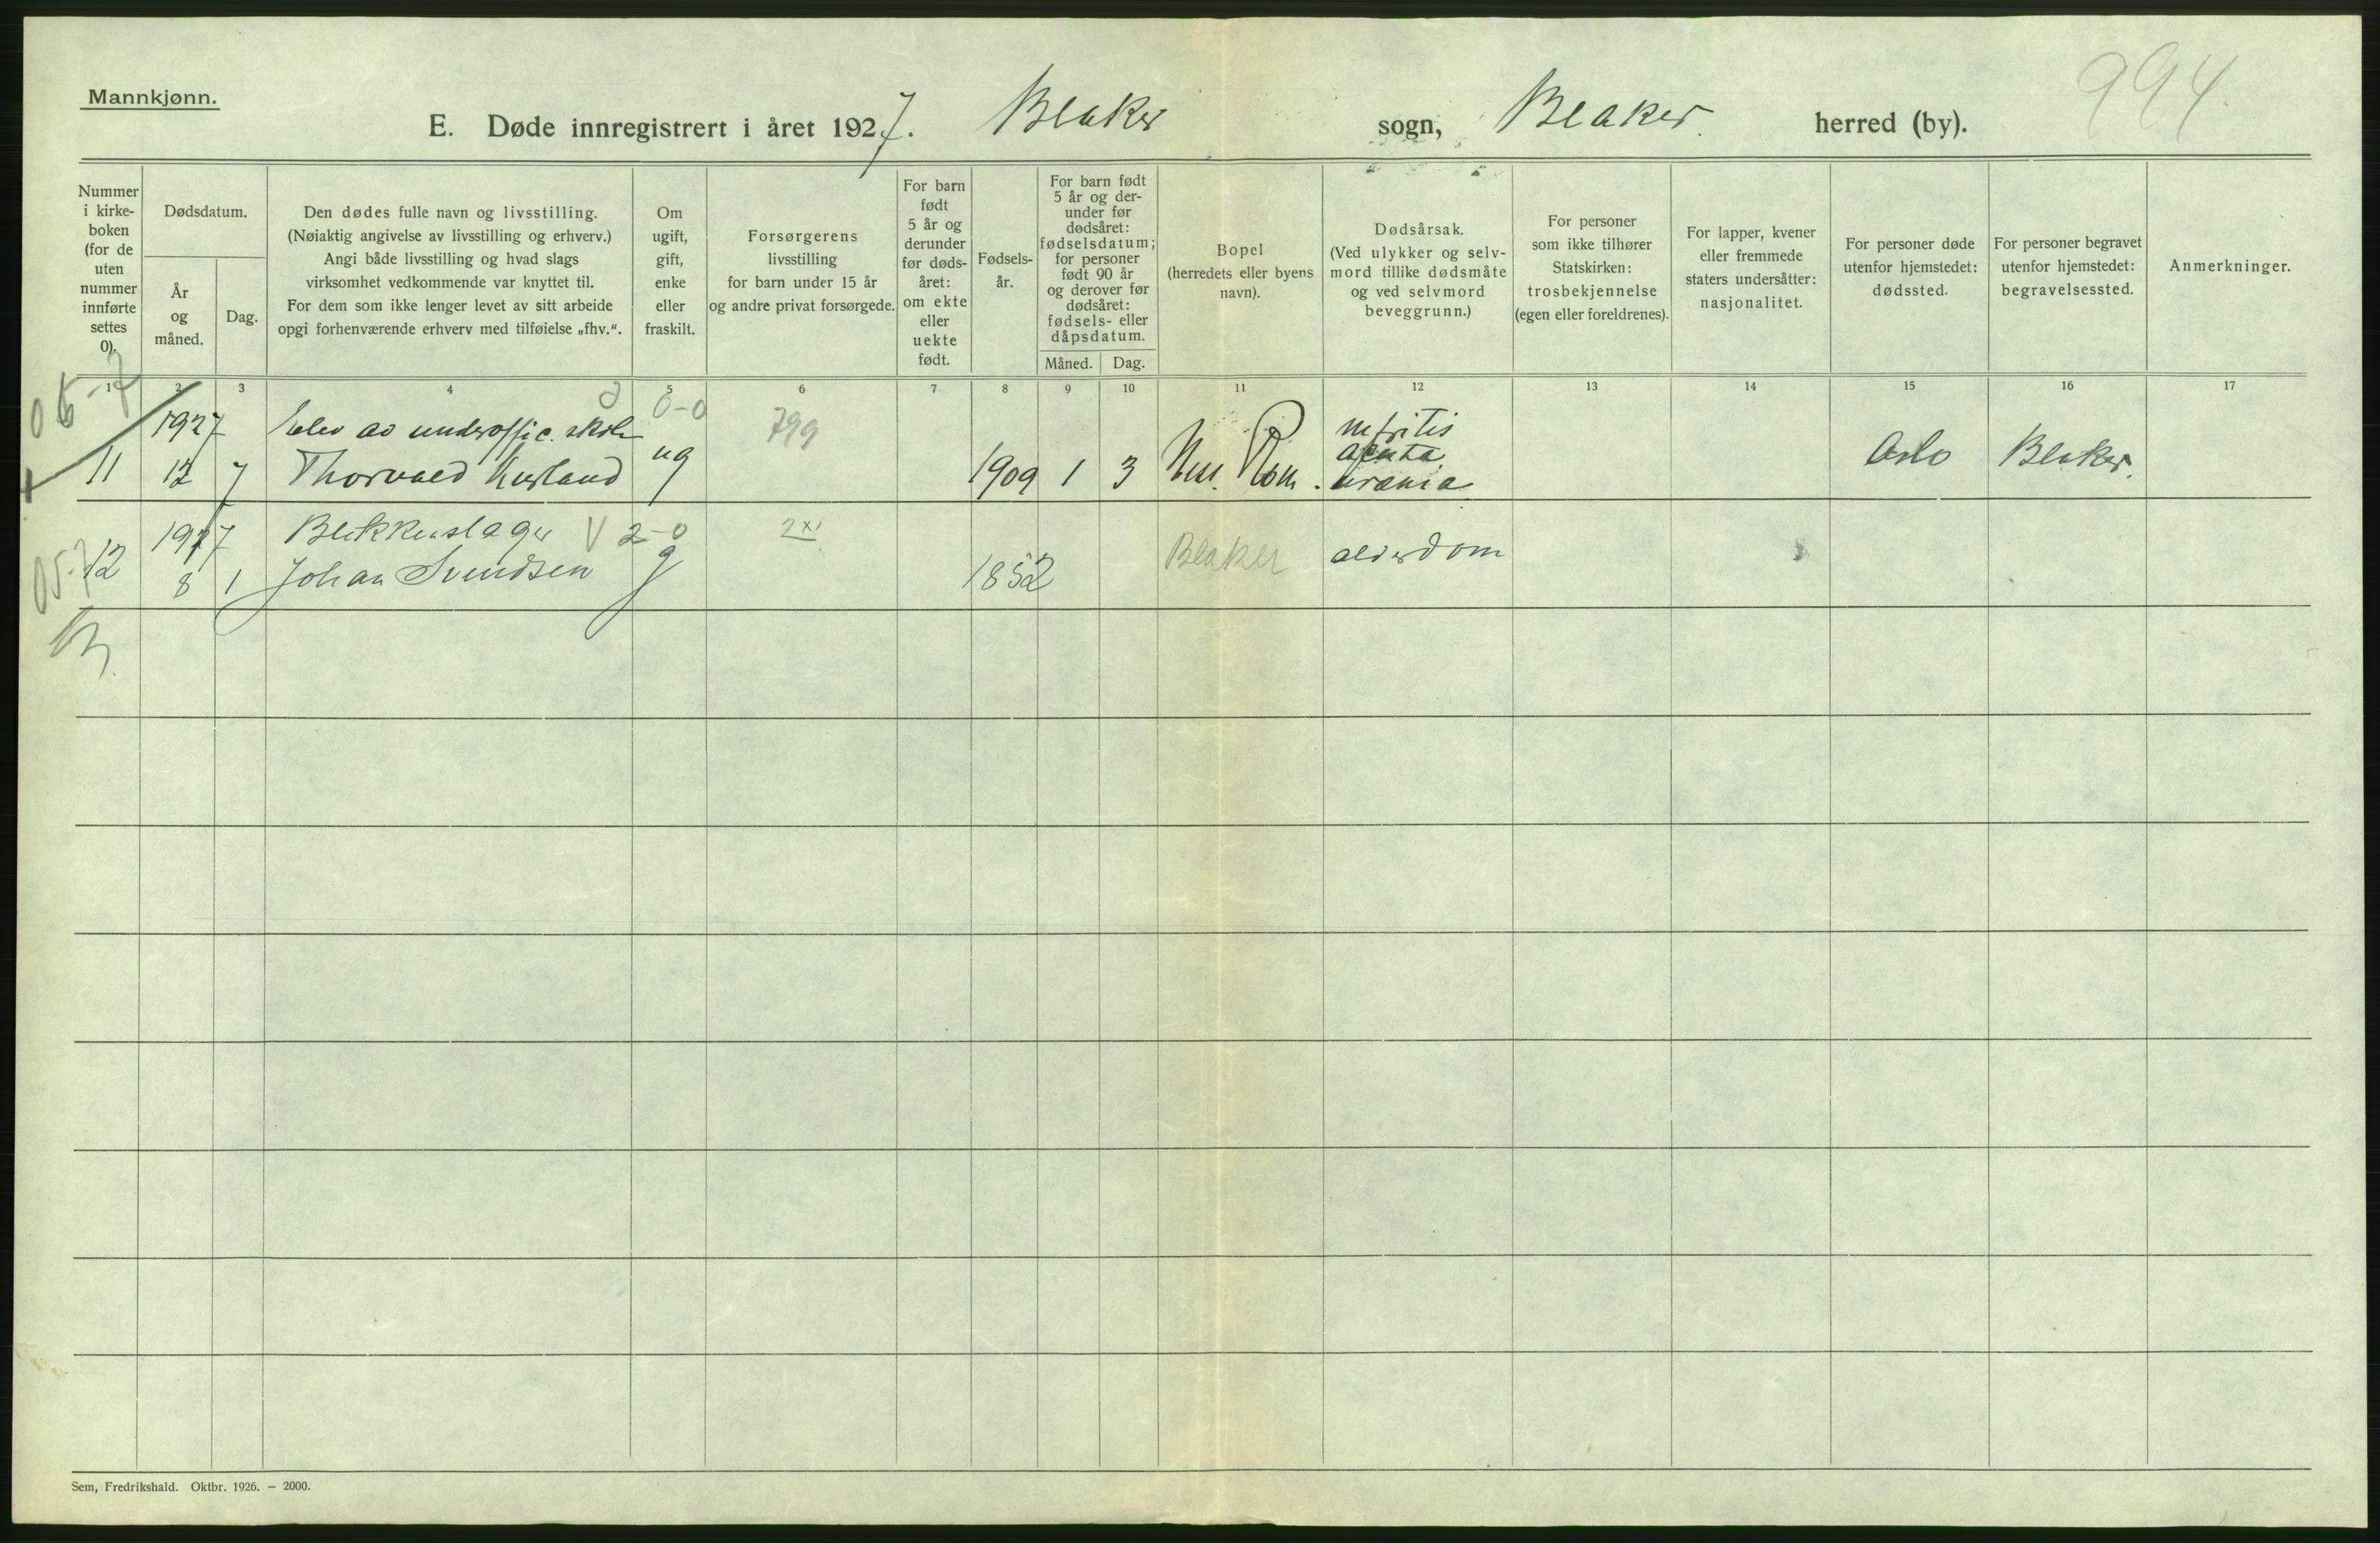 Mannkjønn.
994
E. Døde innregistrert i året 1927. Blaker sogn, Blaker herred (by).
Nummer
i kirke-
boken
(for de
uten
nummer
innførte
settes
0).
Dødsdatum.
År
og
måned.
Dag.
Den dødes fulle navn og livsstilling.
(Nøiaktig angivelse av livsstilling og erhverv.)
Angi både livsstilling og hvad slags
virksomhet vedkommende var knyttet til.
For dem som ikke lenger levet av sitt arbeide
opgi forhenværende erhverv med tilføielse „fhv.“.
Om
ugift,
gift,
enke
eller
fraskilt.
Forsørgerens
livsstilling
for barn under 15 år
og andre privat forsørgede.
For barn
født
5 år og
derunder
før døds-
året:
om ekte
eller
uekte
født.
Fødsels-
år.
For barn født
5 år og der-
under før
dødsåret:
fødselsdatum;
for personer
født 90 år
og derover før
dødsåret:
fødsels- eller
dåpsdatum.
Måned. Dag.
Bopel
(herredets eller byens
navn).
Dødsårsak.
(Ved ulykker og selv-
mord tillike dødsmåte
og ved selvmord
beveggrunn.)
For personer
som ikke tilhører
Statskirken:
trosbekjennelse
(egen eller foreldrenes).
For lapper, kvener
eller fremmede
staters undersåtter:
nasjonalitet.
For personer døde
utenfor hjemstedet:
dødssted.
For personer begravet
utenfor hjemstedet:
begravelsessted.
Anmerkninger.
1 2 3 4 5 6 7 8 9 10 11 12 13 14 15 16 17
1927 Elev av underoffic. skole 0-0 799 nefritis
acuta
11 12 7 Thorvald ug 1909 1 3 uræmia Oslo Blaker.
1927 Blikkenslager V 2-0 2 x1
12 8 1 Johan Svendsen g 1852 Blaker alderdom
Sem, Fredrikshald. Oktbr. 1926. — 2000.